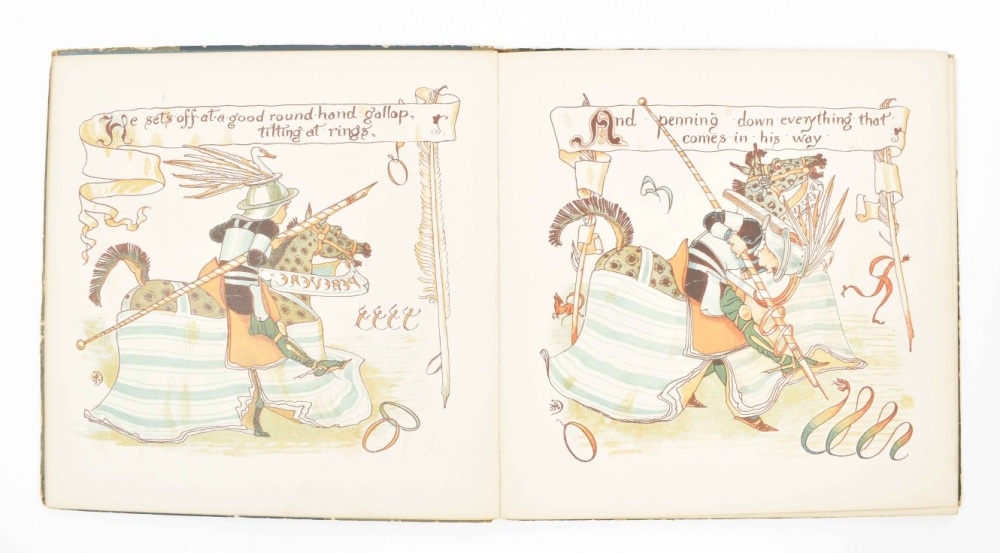 He sets off at a good round hand gallop,
tilting at rings,
PERSEVERE
And penning down everything that
comes in his way